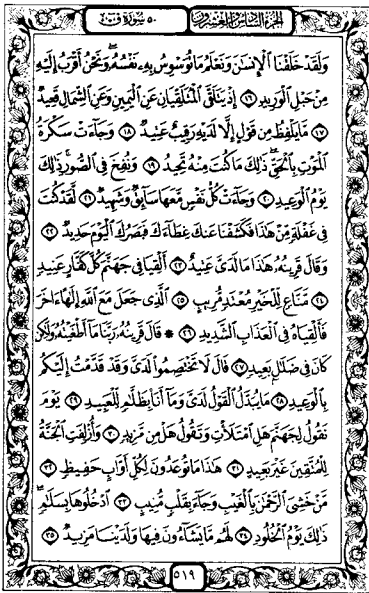 الجزء السادس والعشرون ٥٠ سورة ق
وَلَقَدْ خَلَقْنَا ٱلْإِنسَٰنَ وَنَعْلَمُ مَا تُوَسْوِسُ بِهِۦ نَفْسُهُۥ ۖ وَنَحْنُ أَقْرَبُ إِلَيْهِ
مِنْ حَبْلِ ٱلْوَرِيدِ ١٦ إِذْ يَتَلَقَّى ٱلْمُتَلَقِّيَانِ عَنِ ٱلْيَمِينِ وَعَنِ ٱلشِّمَالِ قَعِيدٌ
١٧ مَّا يَلْفِظُ مِن قَوْلٍ إِلَّا لَدَيْهِ رَقِيبٌ عَتِيدٌ ١٨ وَجَآءَتْ سَكْرَةُ
ٱلْمَوْتِ بِٱلْحَقِّ ۖ ذَٰلِكَ مَا كُنتَ مِنْهُ تَحِيدُ ١٩ وَنُفِخَ فِى ٱلصُّورِ ۚ ذَٰلِكَ
يَوْمُ ٱلْوَعِيدِ ٢٠ وَجَآءَتْ كُلُّ نَفْسٍ مَّعَهَا سَآئِقٌ وَشَهِيدٌ ٢١ لَّقَدْ كُنتَ
فِى غَفْلَةٍ مِّنْ هَٰذَا فَكَشَفْنَا عَنكَ غِطَآءَكَ فَبَصَرُكَ ٱلْيَوْمَ حَدِيدٌ ٢٢
وَقَالَ قَرِينُهُۥ هَٰذَا مَا لَدَىَّ عَتِيدٌ ٢٣ أَلْقِيَا فِى جَهَنَّمَ كُلَّ كَفَّارٍ عَنِيدٍ
٢٤ مَّنَّاعٍ لِّلْخَيْرِ مُعْتَدٍ مُّرِيبٍ ٢٥ ٱلَّذِى جَعَلَ مَعَ ٱللَّهِ إِلَٰهًا ءَاخَرَ
فَأَلْقِيَاهُ فِى ٱلْعَذَابِ ٱلشَّدِيدِ ٢٦ ۞ قَالَ قَرِينُهُۥ رَبَّنَا مَآ أَطْغَيْتُهُۥ وَلَٰكِن
كَانَ فِى ضَلَٰلٍۭ بَعِيدٍ ٢٧ قَالَ لَا تَخْتَصِمُوا۟ لَدَىَّ وَقَدْ قَدَّمْتُ إِلَيْكُم
بِٱلْوَعِيدِ ٢٨ مَا يُبَدَّلُ ٱلْقَوْلُ لَدَىَّ وَمَآ أَنَا۠ بِظَلَّٰمٍ لِّلْعَبِيدِ ٢٩ يَوْمَ
نَقُولُ لِجَهَنَّمَ هَلِ ٱمْتَلَأْتِ وَتَقُولُ هَلْ مِن مَّزِيدٍ ٣٠ وَأُزْلِفَتِ ٱلْجَنَّةُ
لِلْمُتَّقِينَ غَيْرَ بَعِيدٍ ٣١ هَٰذَا مَا تُوعَدُونَ لِكُلِّ أَوَّابٍ حَفِيظٍ ٣٢
مَّنْ خَشِىَ ٱلرَّحْمَٰنَ بِٱلْغَيْبِ وَجَآءَ بِقَلْبٍ مُّنِيبٍ ٣٣ ٱدْخُلُوهَا بِسَلَٰمٍ ۖ
ذَٰلِكَ يَوْمُ ٱلْخُلُودِ ٣٤ لَهُم مَّا يَشَآءُونَ فِيهَا وَلَدَيْنَا مَزِيدٌ ٣٥
٥١٩